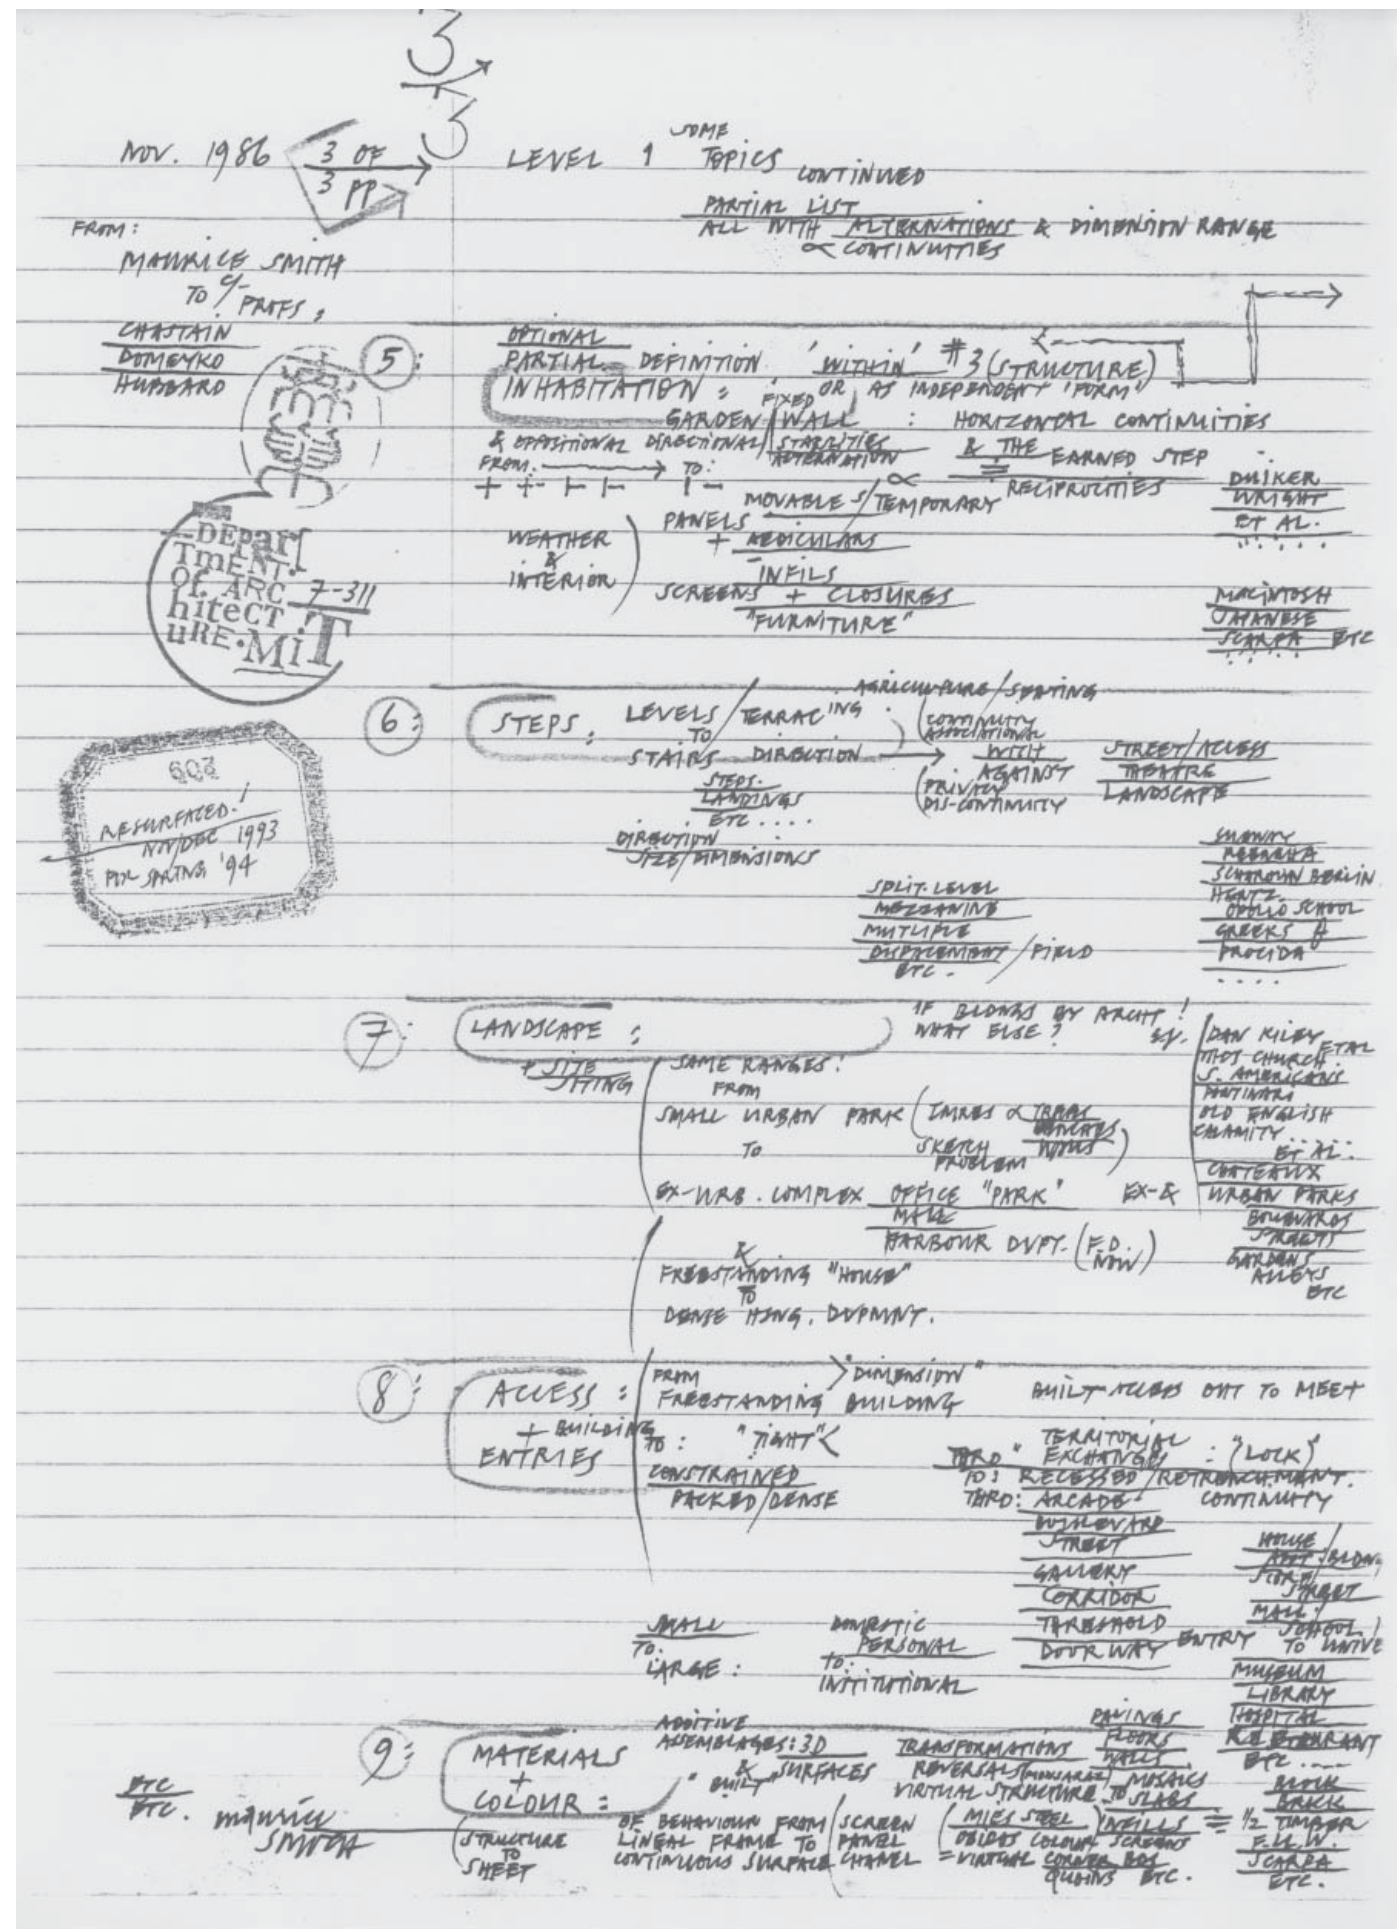 3
3
NOV. 1986
3 OF
3 PP
LEVEL 1 SOME TOPICS CONTINUED
PARTIAL LIST
ALL WITH ALTERNATIONS & DIMENSION RANGE
∝ CONTINUITIES
FROM:
MAURICE SMITH
TO PROFS,
CHASTAIN
DOMEYKO
HUBBARD
5:
OPTIONAL
PARTIAL DEFINITION 'WITHIN' #3 (STRUCTURE)
INHABITATION: OR AS INDEPENDENT 'FORM'
FIXED
GARDEN/WALL : HORIZONTAL CONTINUITIES
& OPPOSITIONAL DIRECTIONAL/STABILITIES & THE EARNED STEP
ALTERNATION
FROM: → TO:
∝ RECIPROCITIES
MOVABLE S/TEMPORARY
PANELS
+ AEDICULARS
INFILS
SCREENS + CLOSURES
"FURNITURE"
WEATHER
&
INTERIOR
DUIKER
WRIGHT
ET AL.
.....
MACINTOSH
JAPANESE
SCARPA ETC
.....
DEPar
TmENT.
Of. ARC 7-311
hiteCT
uRE.MiT
6:
STEPS: LEVELS/TERRACING. AGRICULTURE/SEATING
TO
STAIRS DIRECTION →
STEPS.
LANDINGS
ETC....
DIRECTION
SIZE/DIMENSIONS
(CONTINUITY
ASSOCIATIONAL
WITH
AGAINST
(PRIVACY
DIS-CONTINUITY
STREET/ACCESS
THEATRE
LANDSCAPE
SPLIT-LEVEL
MEZZANINE
MUTLIPLE
DISPLACEMENT/FIELD
ETC.
SUBWAY
SCHAROUN BERLIN
HERTZ.
SCHOOL
GREEKS
PROCIDA
....
RESURFACED!
NOV/DEC 1993
FOR SPRING '94
7:
LANDSCAPE:
+ SITE
SITING
IF BLDNGS BY ARCHT!
WHAT ELSE?
SAME RANGES:
FROM
SMALL URBAN PARK
TREES
BENCHES
TO
SKETCH
PROBLEM
EX-URB. COMPLEX OFFICE "PARK" EX-&
MALL
HARBOUR DVPT. (F.D. NOW)
&
FREESTANDING "HOUSE"
TO
DENSE HSNG. DVPMNT.
DAN KILEY ET AL
THOS CHURCH
S. AMERICANS
OLD ENGLISH
CALAMITY....
ET AL.
CHATEAUX
URBAN PARKS
BOULEVARDS
STREETS
GARDENS
ALLEYS
ETC
8:
ACCESS:
+ BUILDING
ENTRIES
FROM >"DIMENSION"
FREESTANDING BUILDING
TO: "TIGHT"<
CONSTRAINED
PACKED/DENSE
BUILT-ACCESS OUT TO MEET
TERRITORIAL
THRO" EXCHANGES : "(LOCK)"
TO: RECESSED/RETRENCHMENT.
THRO: ARCADE- CONTINUITY
BOULEVARD
STREET
GALLERY
CORRIDOR
THRESHOLD
DOORWAY ENTRY
SMALL
TO:
LARGE:
DOMESTIC
PERSONAL
TO:
INSTITUTIONAL
HOUSE/
APT./BLDNG
STORE/
STREET
MALL:
SCHOOL/
TO UNIVE
MUSEUM
LIBRARY
HOSPITAL
RESTAURANT
ETC....
9:
MATERIALS
+
COLOUR:
ADDITIVE
ASSEMBLAGES: 3D
& SURFACES
"BUILT"
TRANSFORMATIONS
REVERSALS
VIRTUAL STRUCTURE TO
PAVINGS
FLOORS
WALLS
MOSAICS
SLABS
(STRUCTURE
TO
SHEET
OF BEHAVIOUR FROM
LINEAL FRAME TO
CONTINUOUS SURFACE
SCREEN
PANEL
CHANEL
(MIES STEEL) INFILLS
COLOUR SCREENS
=VIRTUAL CORNER BDS
QUOINS ETC.
BLOCK
BRICK
1/2 TIMBER
F.LL.W.
SCARPA
ETC.
ETC
ETC.
maurice
SMITH